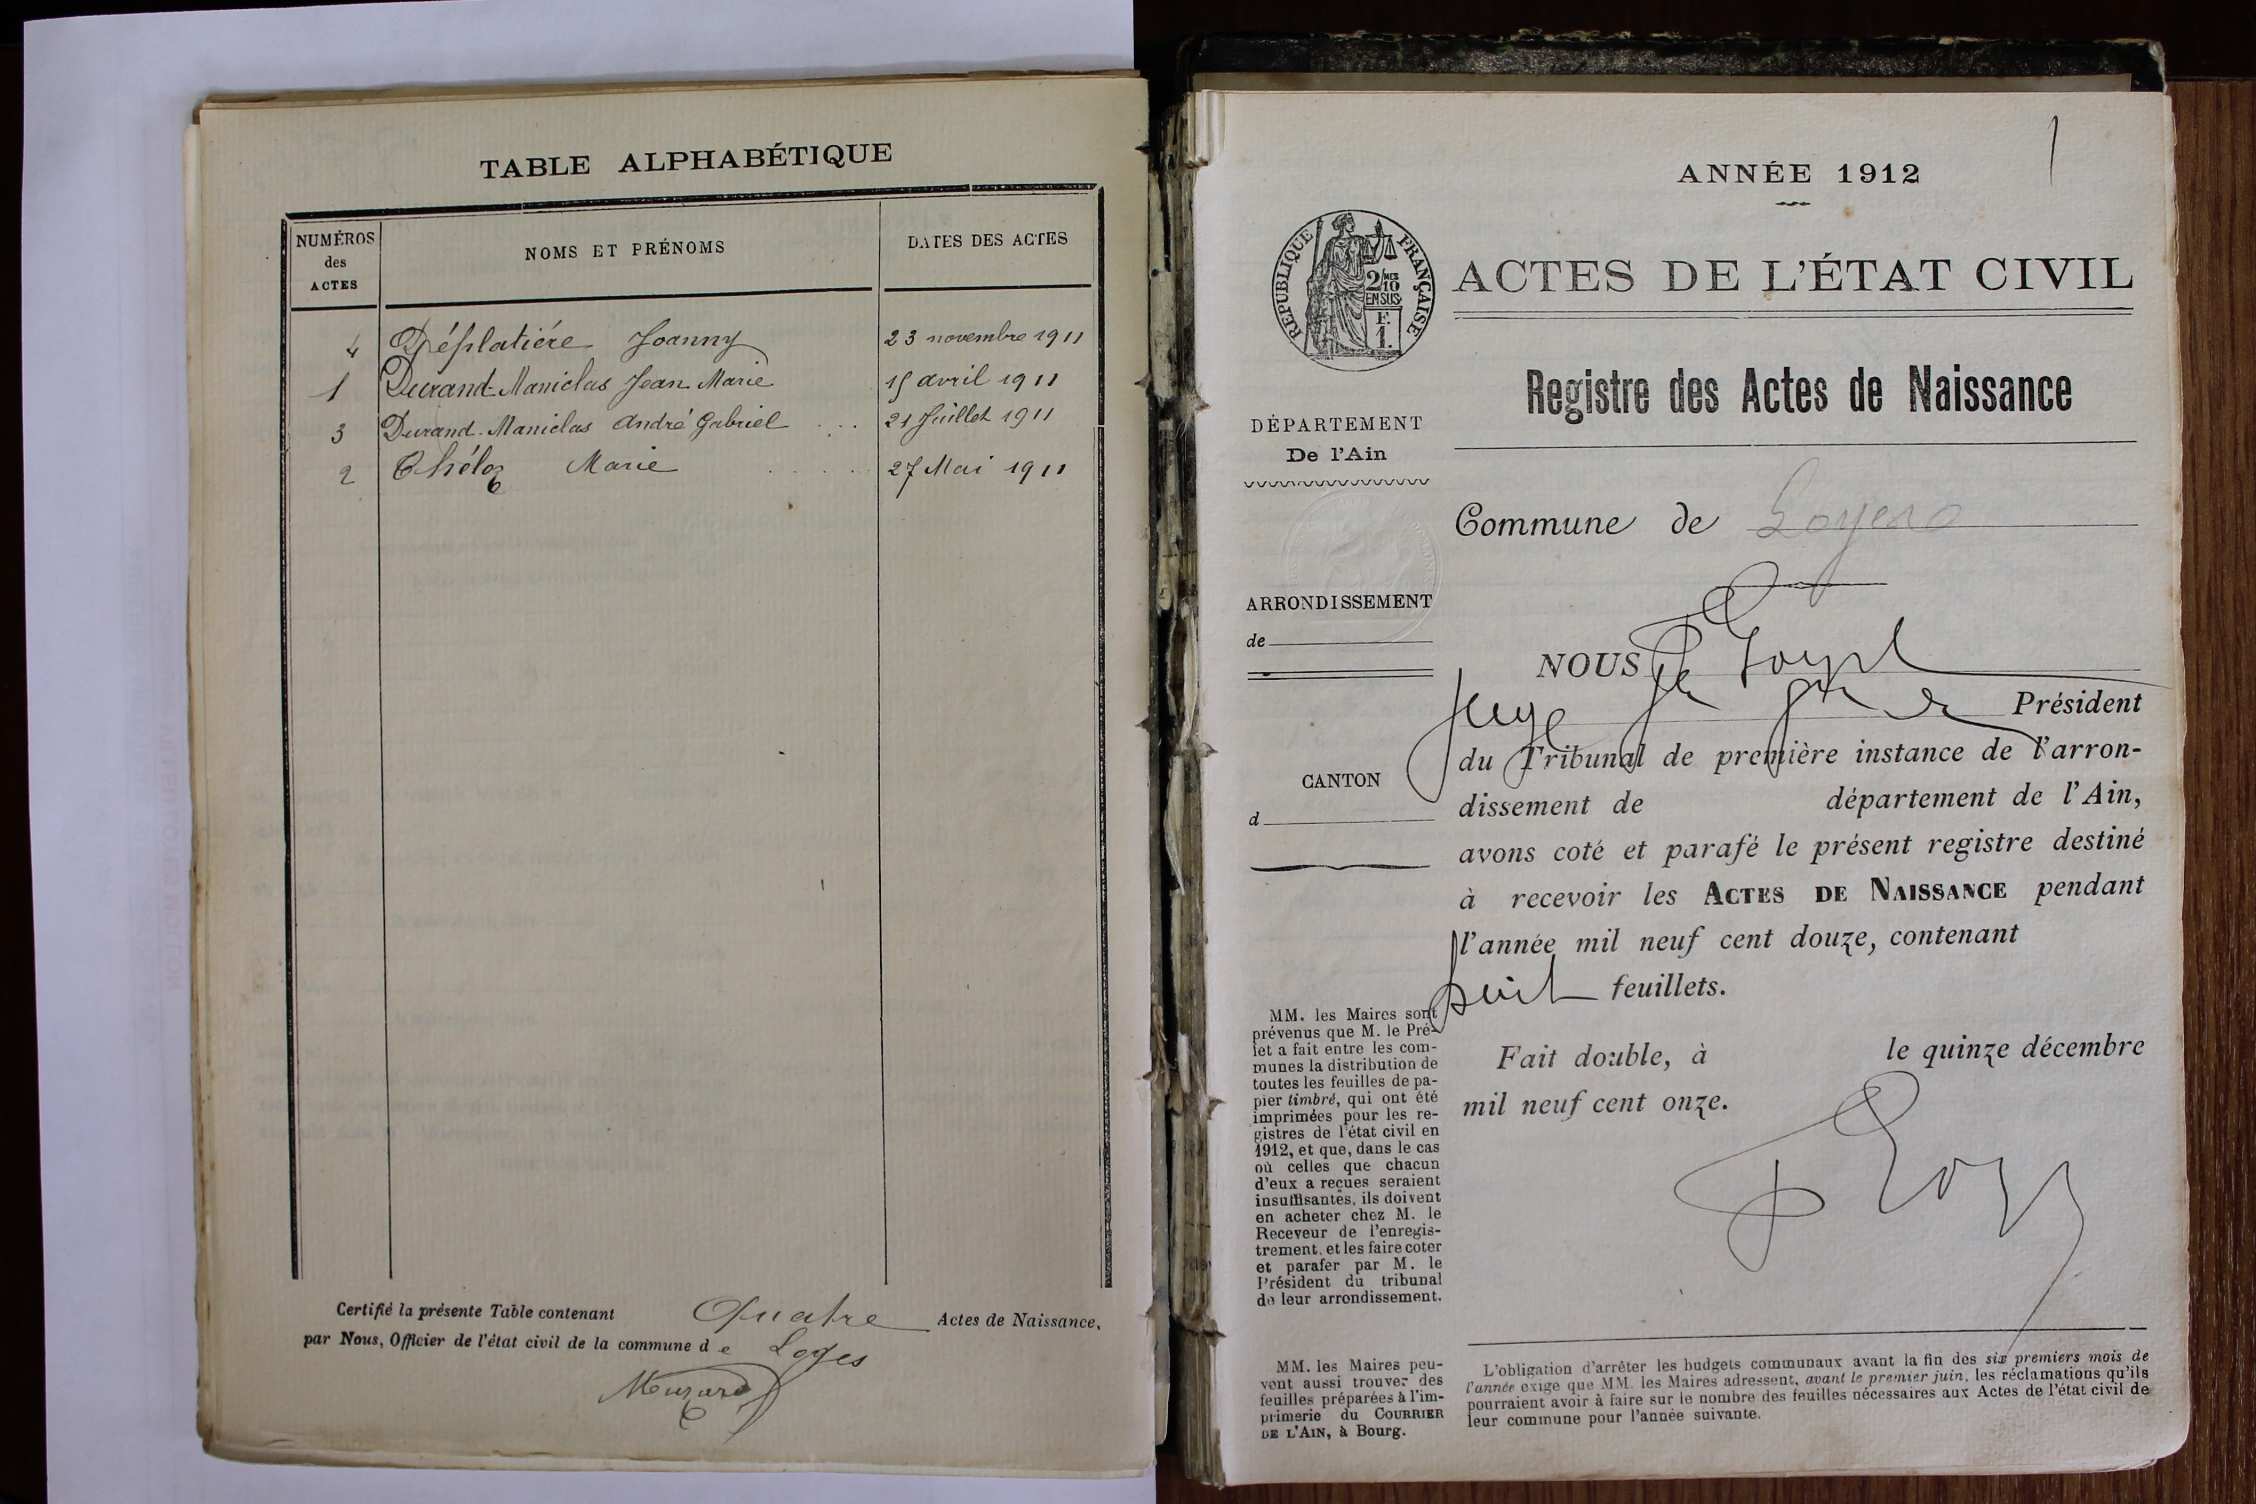 TABLE ALPHABÉTIQUE
NUMÉROS des ACTES
NOMS ET PRÉNOMS
DATES DES ACTES
4 Joanny 23 novembre 1911
1 Durand-Maniclas Jean Marie 15 avril 1911
3 Durand-Maniclas André Gabriel 21 Juillet 1911
2 Marie 27 Mai 1911
Certifié la présente Table contenant Quatre Actes de Naissance,
par Nous, Officier de l'état civil de la commune d e Loyes
1
ANNÉE 1912
RÉPUBLIQUE FRANÇAISE
2/10 MES
EN SUS
F.
1.
ACTES DE L'ÉTAT CIVIL
Registre des Actes de Naissance
DÉPARTEMENT
De l'Ain
Commune de Loyes
ARRONDISSEMENT
de
CANTON
d
NOUS
Juge Président
du Tribunal de première instance de l'arron-
dissement de département de l'Ain,
avons coté et parafé le présent registre destiné
à recevoir les ACTES DE NAISSANCE pendant
l'année mil neuf cent douze, contenant
huit feuillets.
Fait double, à le quinze décembre
mil neuf cent onze.
MM. les Maires sont
prévenus que M. le Pré-
fet a fait entre les com-
munes la distribution de
toutes les feuilles de pa-
pier timbré, qui ont été
imprimées pour les re-
gistres de l'état civil en
1912, et que, dans le cas
où celles que chacun
d'eux a reçues seraient
insuffisantes, ils doivent
en acheter chez M. le
Receveur de l'enregis-
trement, et les faire coter
et parafer par M. le
Président du tribunal
de leur arrondissement.
MM. les Maires peu-
vent aussi trouver des
feuilles préparées à l'im-
primerie du COURRIER
DE L'AIN, à Bourg.
L'obligation d'arrêter les budgets communaux avant la fin des six premiers mois de
l'année exige que MM. les Maires adressent, avant le premier juin, les réclamations qu'ils
pourraient avoir à faire sur le nombre des feuilles nécessaires aux Actes de l'état civil de
leur commune pour l'année suivante.